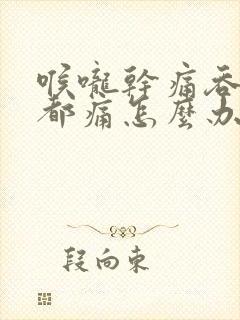 喉嚨幹痛吞
都痛怎麼办
段向東